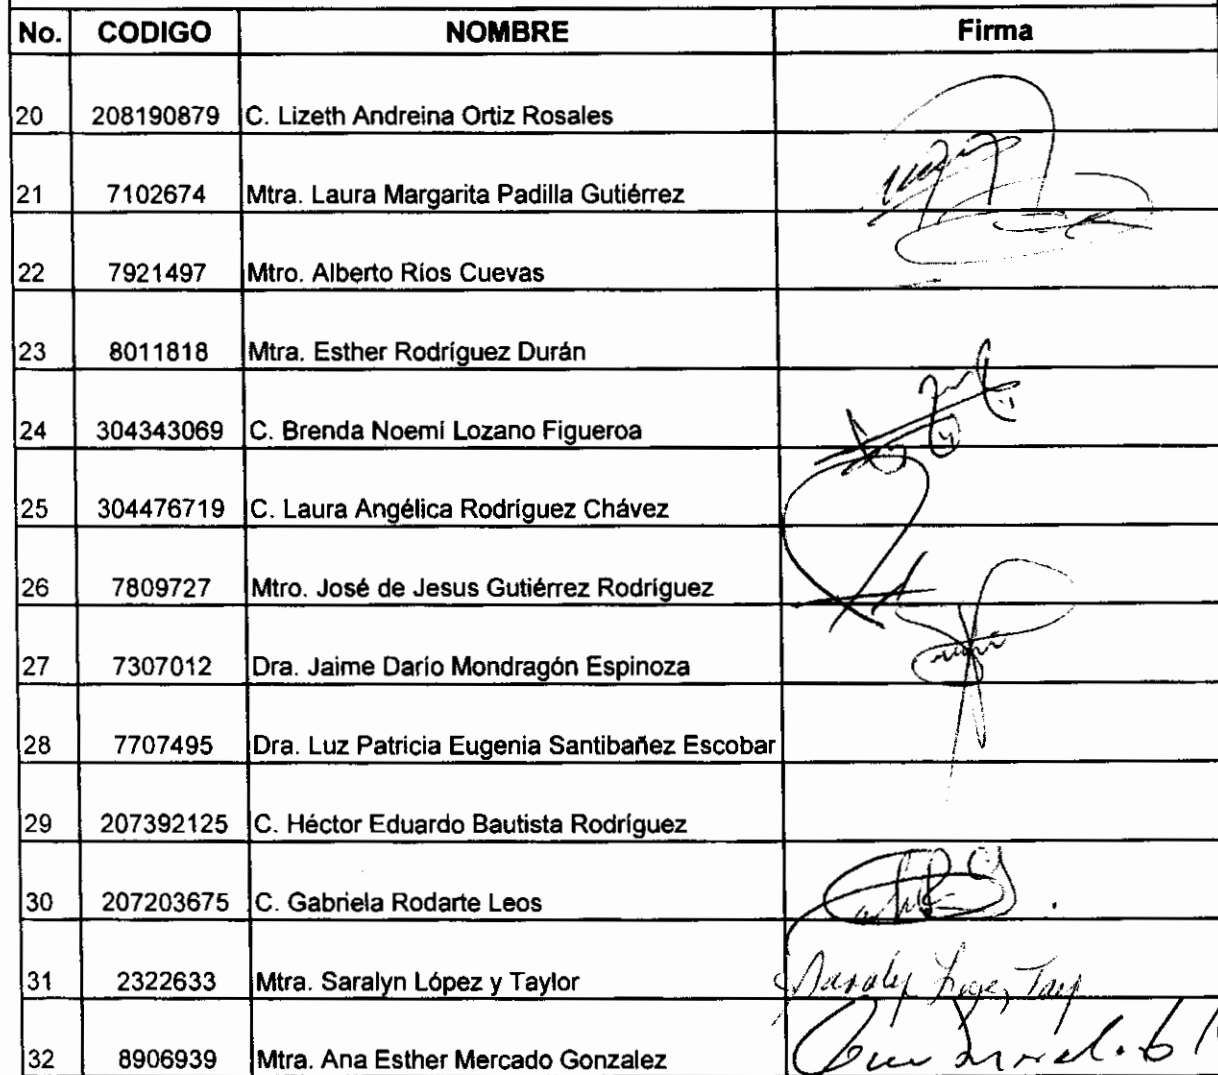 No. CODIGO NOMBRE Firma
20 208190879 C. Lizeth Andreina Ortiz Rosales
21 7102674 Mtra. Laura Margarita Padilla Gutiérrez
22 7921497 Mtro. Alberto Ríos Cuevas
23 8011818 Mtra. Esther Rodríguez Durán
24 304343069 C. Brenda Noemí Lozano Figueroa
25 304476719 C. Laura Angélica Rodríguez Chávez
26 7809727 Mtro. José de Jesus Gutiérrez Rodríguez
27 7307012 Dra. Jaime Darío Mondragón Espinoza
28 7707495 Dra. Luz Patricia Eugenia Santibañez Escobar
29 207392125 C. Héctor Eduardo Bautista Rodríguez
30 207203675 C. Gabriela Rodarte Leos
31 2322633 Mtra. Saralyn López y Taylor
32 8906939 Mtra. Ana Esther Mercado Gonzalez